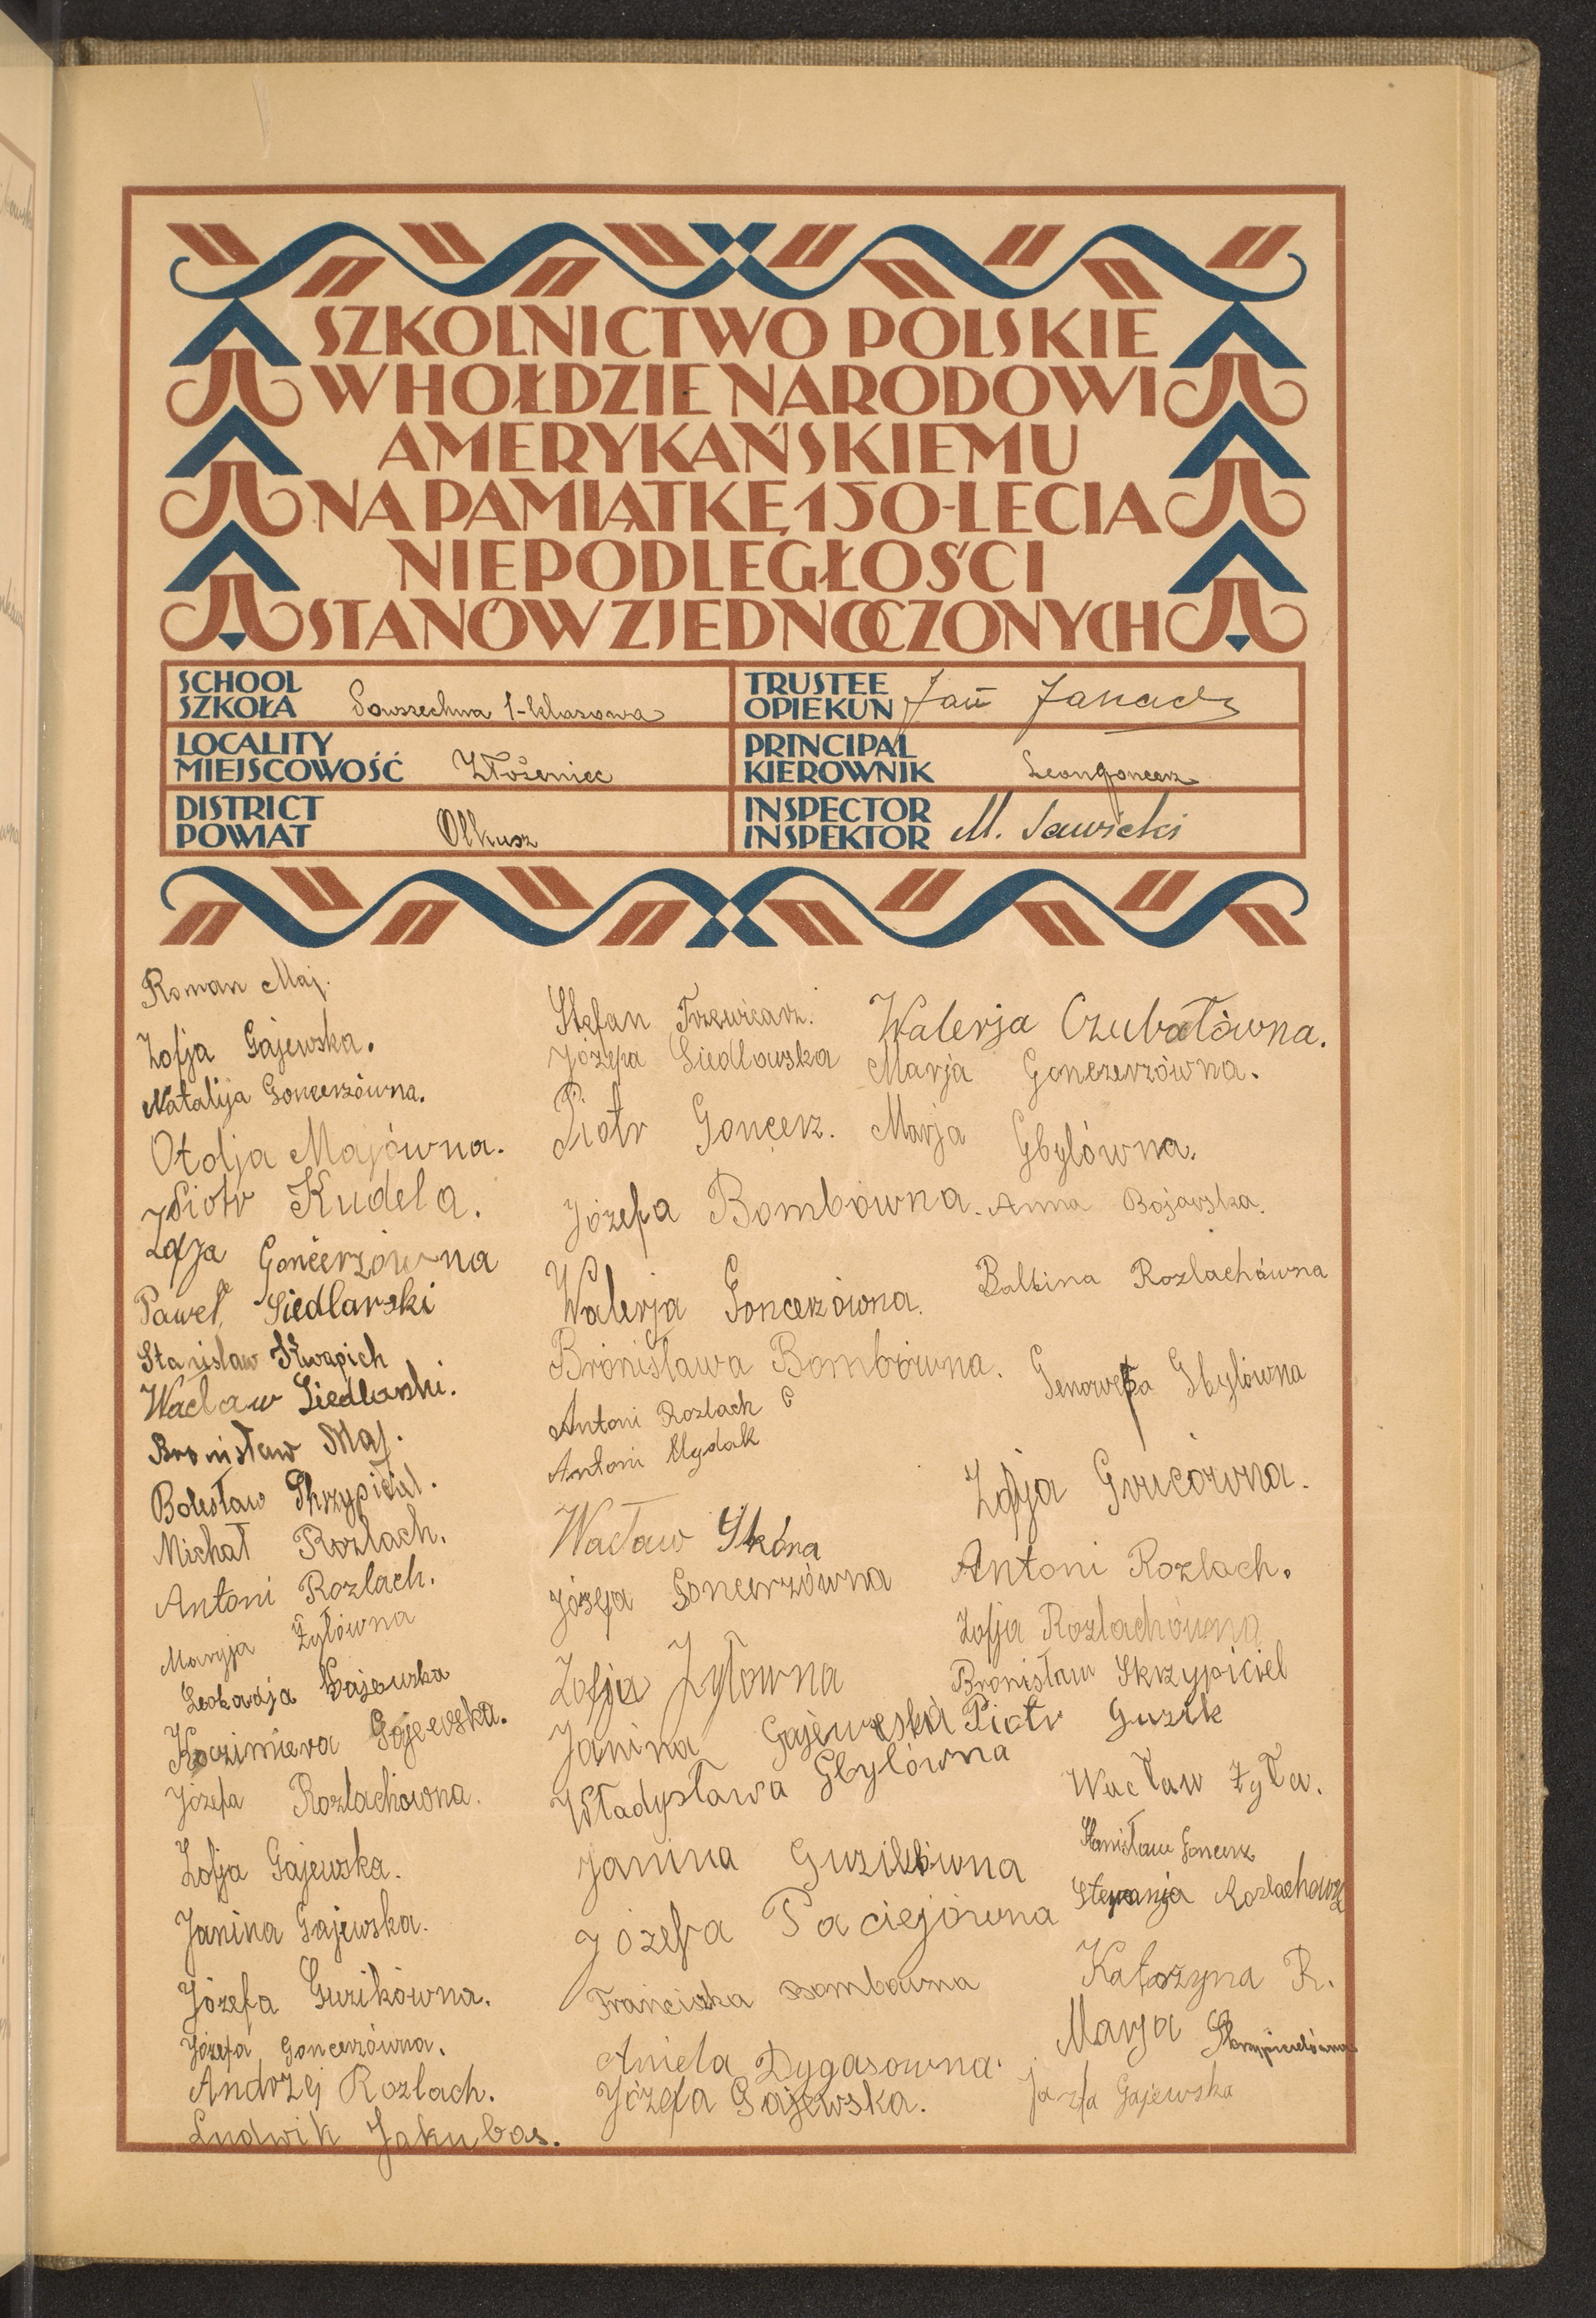 SZKOLNICTWO POLSKIE
W HOŁDZIE NARODOWI
AMERYKAŃSKIEMU
NA PAMIĄTKĘ 150-LECIA
NIEPODLEGŁOŚCI
STANÓW ZJEDNOCZONYCH
SCHOOL
SZKOŁA Powszechna 1-klasowa
TRUSTEE
OPIEKUN Jan
LOCALITY
MIEJSCOWOŚĆ Złożeniec
PRINCIPAL
KIEROWNIK Leon Goncerz
DISTRICT
POWIAT Olkusz
INSPECTOR
INSPEKTOR M. Sawicki
Roman Maj.
Zofja Gajewska.
Natalija Goncerzówna.
Otolja Majówna.
Piotr Kudela.
Zofja Goncerzówna
Paweł Siedlarski
Stanisław Kwapich
Wacław Siedlarski.
Bronisław Maj.
Bolesław Skrzypiciel.
Michał Rozlach.
Antoni Rozlach.
Maryja Żyłówna
Leokadja Gajewska
Kazimiera Gajewska.
Józefa Rozlachówna.
Zofja Gajewska.
Janina Gajewska.
Józefa Guzikówna.
Józefa Goncerzówna.
Andrzej Rozlach.
Ludwik Jakubas.
Stefan Trzewicarz.
Józefa Siedlawska
Piotr Goncerz.
Józefa Bombówna.
Walerja Goncerzówna.
Bronisława Bombówna.
Antoni Rozlach
Antoni
Wacław Skóra
Józefa Goncerzówna
Zofja Żyłówna
Janina Gajeweska
Władysława Gbylówna
Janina Guzikówna
Józefa Paciejówna
Franciszka Bombówna
Aniela Dygasowna.
Józefa Gajewska.
Walerja Czubatówna.
Marja Gonczerzówna.
Marja Gbylówna.
Anna Bojarska.
Balbina Rozlachówna
Genowefa Gbylówna
Zofja
Antoni Rozlach.
Zofja Rozlachówna
Bronisław Skrzypiciel
Piotr Guzik
Wacław Żyła.
Stanisław Goncerz
Stefanja
Katarzyna R.
Marja Skrzypicielówna
Gajewska